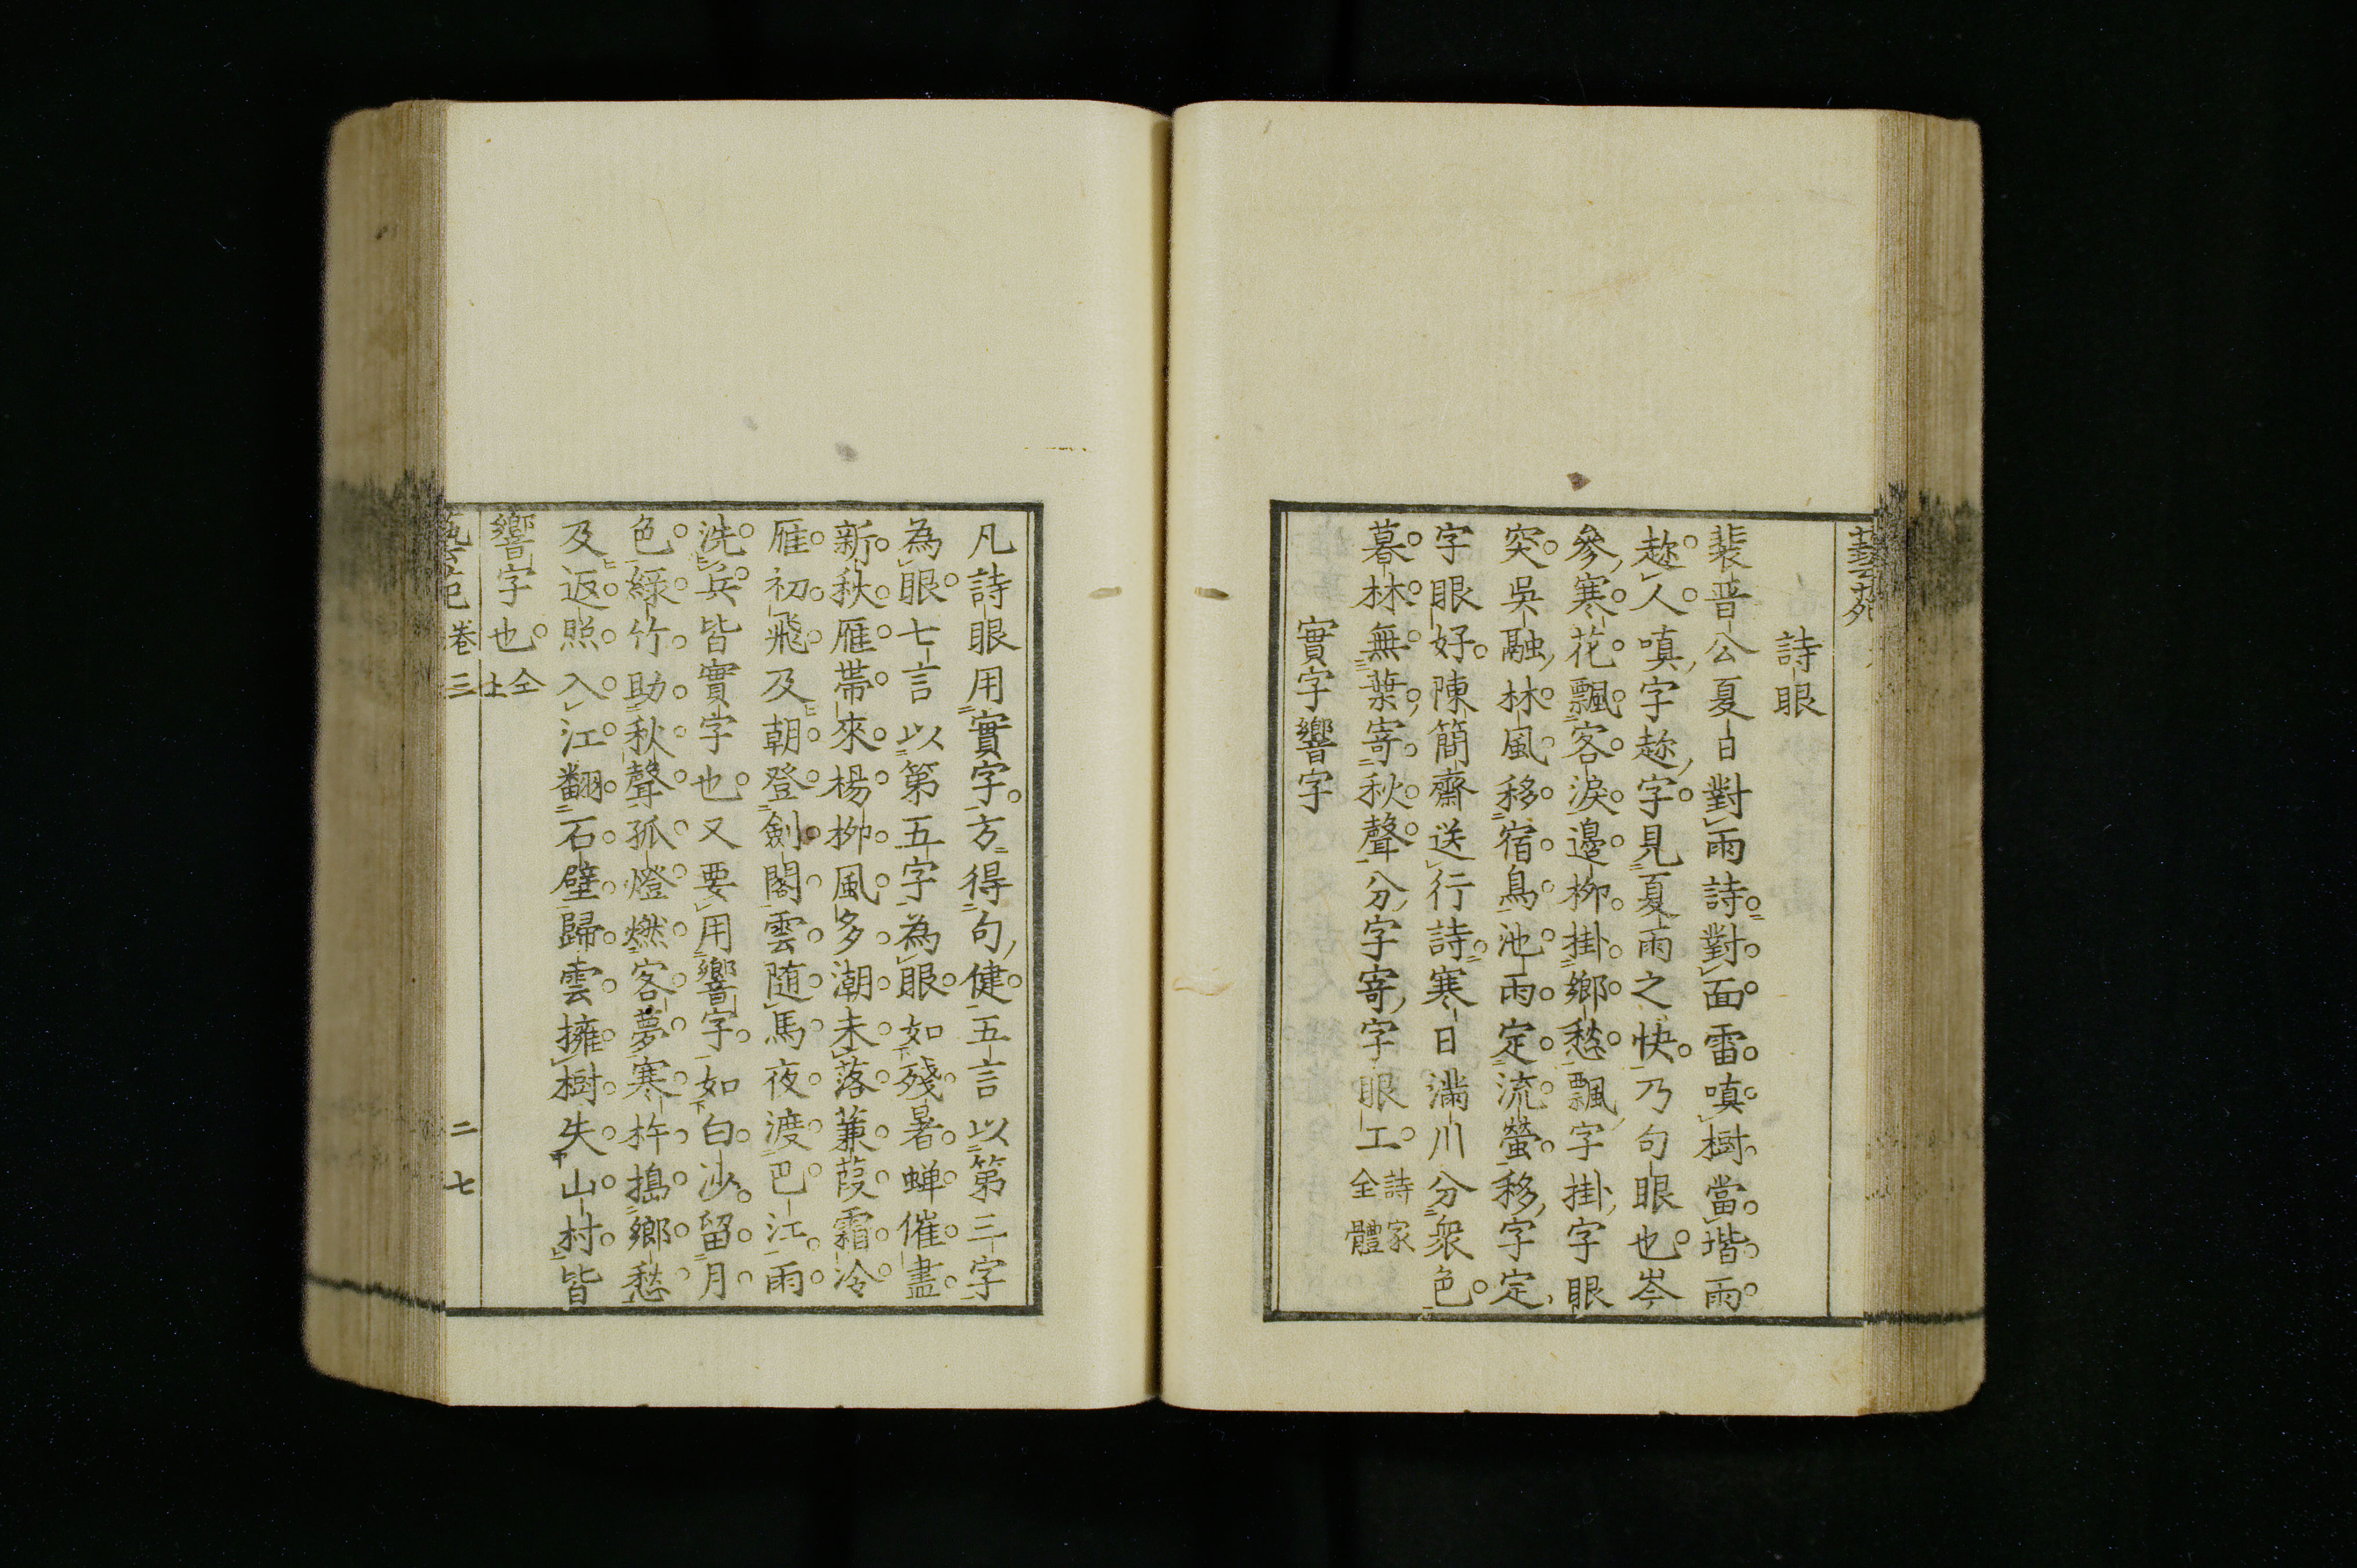 詩眼
裴晋公夏日對雨詩對面雷嗔樹當堦雨
趂人嗔字趂字見夏雨之快乃句眼也岑
參寒花飄客淚邊柳掛鄉愁飄字掛字眼
突吳融林風移宿鳥池雨定流螢移字定
字眼好陳簡齋送行詩寒日滿川分衆色
暮林無葉寄秋聲分字寄字眼工詩家全體
實字響字
凡詩眼用實字方得句健五言以第三字
為眼七言以第五字為眼如殘暑蟬催盡
新秋雁帶來楊柳風多潮未落蒹葭霜冷
雁初飛及朝登劍閣雲随馬夜渡巴江雨
洗兵皆實字也又要用響字如白沙留月
色綠竹助秋聲孤燈燃客夢寒杵搗鄉愁
及返照入江翻石壁歸雲擁樹失山村皆
響字也仝上
卷三 二七